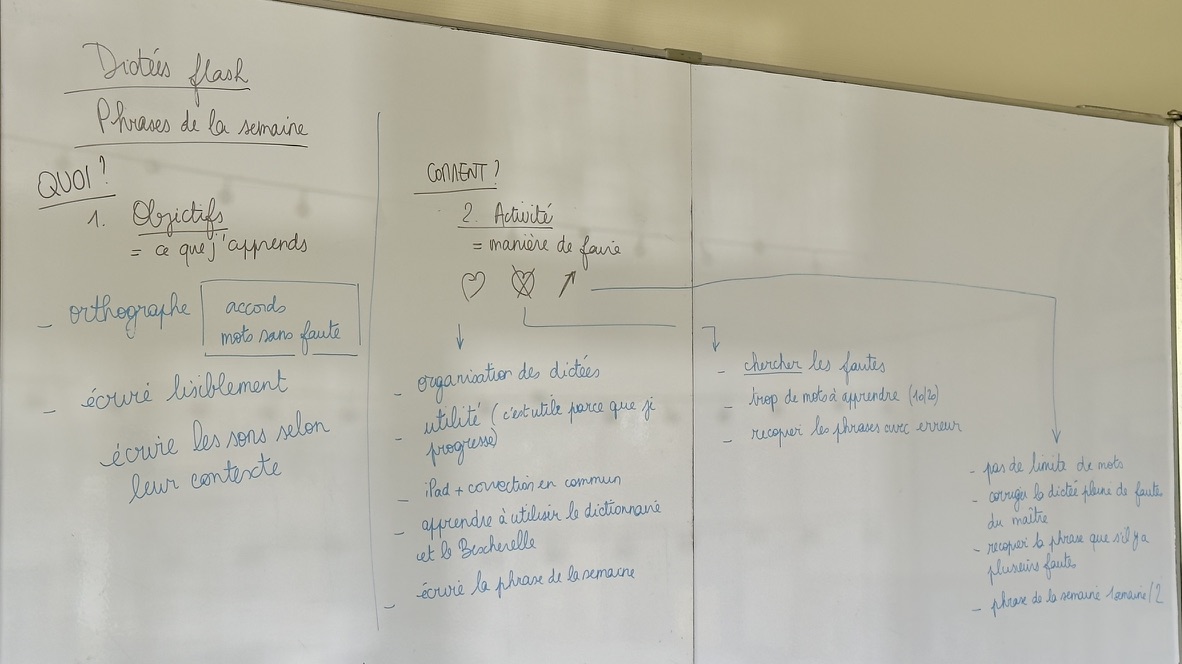 Dictées flash
Phrases de la semaine
QUOI ?
1. Objectifs
= ce que j'apprends
- orthographe
accords
mots sans faute
- écrire lisiblement
écrire les sons selon
leur contexte
COMMENT ?
2. Activité
= manière de faire
- organisation des dictées
- utilité (c'est utile parce que je
progresse)
- iPad + correction en commun
- apprendre à utiliser le dictionnaire
et le Bescherelle
- écrire la phrase de la semaine
- chercher les fautes
- trop de mots à apprendre (10/20)
- recopier les phrases avec erreur
- pas de limite de mots
- corriger la dictée pleine de fautes
du maître
- recopier la phrase que s'il y a
plusieurs fautes
- phrase de la semaine 1 semaine/2